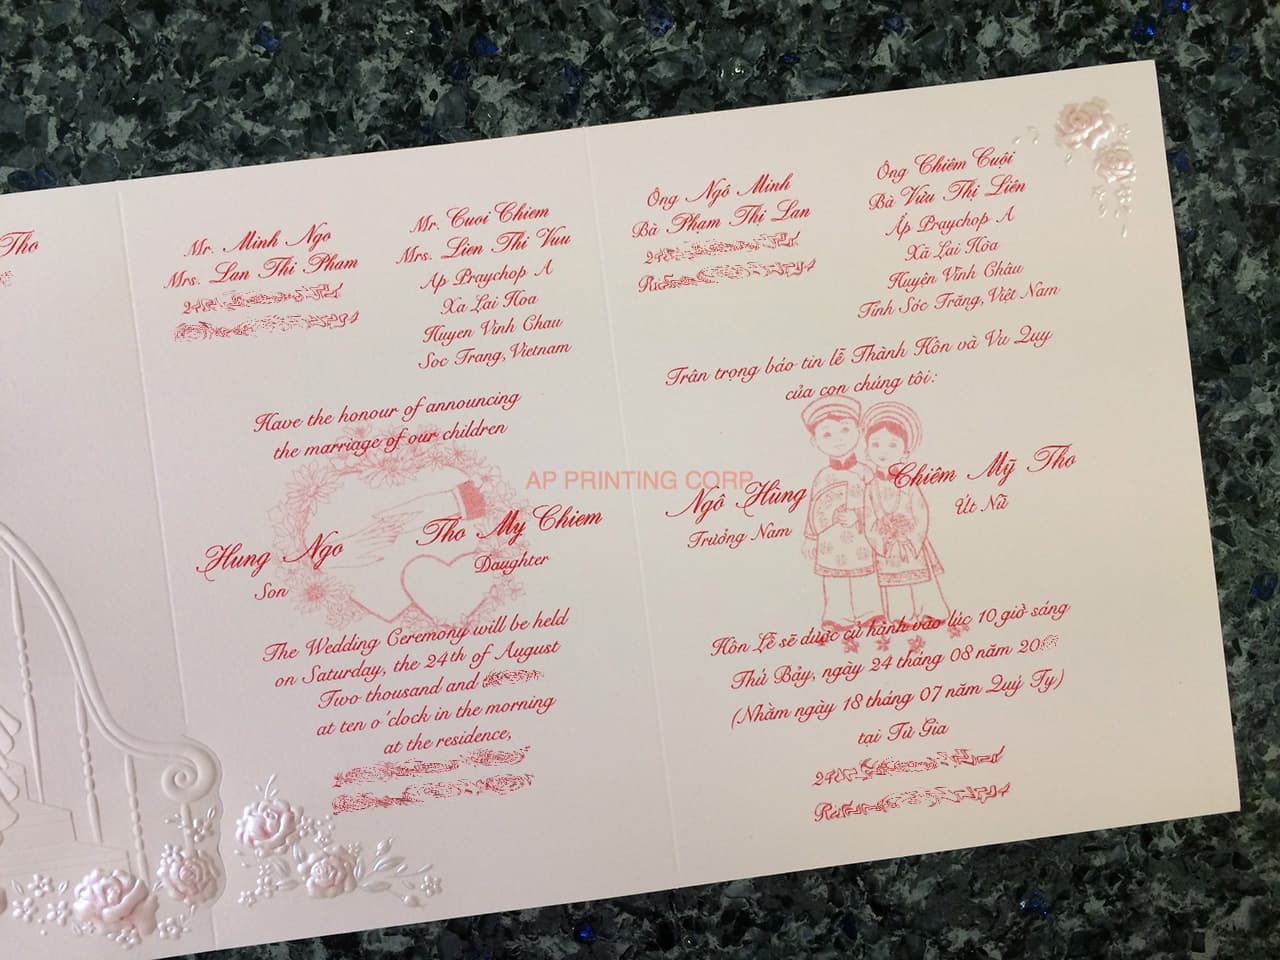 Tho
Mr. Minh Ngo
Mrs. Lan Thi Pham
Mr. Cuoi Chiem
Mrs. Lien Thi Vuu
Ap Praychop A
Xa Lai Hoa
Huyen Vinh Chau
Soc Trang, Vietnam
Have the honour of announcing
the marriage of our children
Hung Ngo
Son
Tho My Chiem
Daughter
The Wedding Ceremony will be held
on Saturday, the 24th of August
Two thousand and
at ten o'clock in the morning
at the residence,
AP PRINTING CORP
Ông Ngô Minh
Bà Phạm Thị Lan
Ông Chiêm Cuội
Bà Vưu Thị Liên
Ấp Praychop A
Xã Lai Hòa
Huyện Vĩnh Châu
Tỉnh Sóc Trăng, Việt Nam
Trân trọng báo tin lễ Thành Hôn và Vu Quy
của con chúng tôi:
Ngô Hùng
Trưởng Nam
Chiêm Mỹ Tho
Út Nữ
Hôn Lễ sẽ được cử hành vào lúc 10 giờ sáng
Thứ Bảy, ngày 24 tháng 08 năm 20
(Nhằm ngày 18 tháng 07 năm Quý Tỵ)
tại Tư Gia